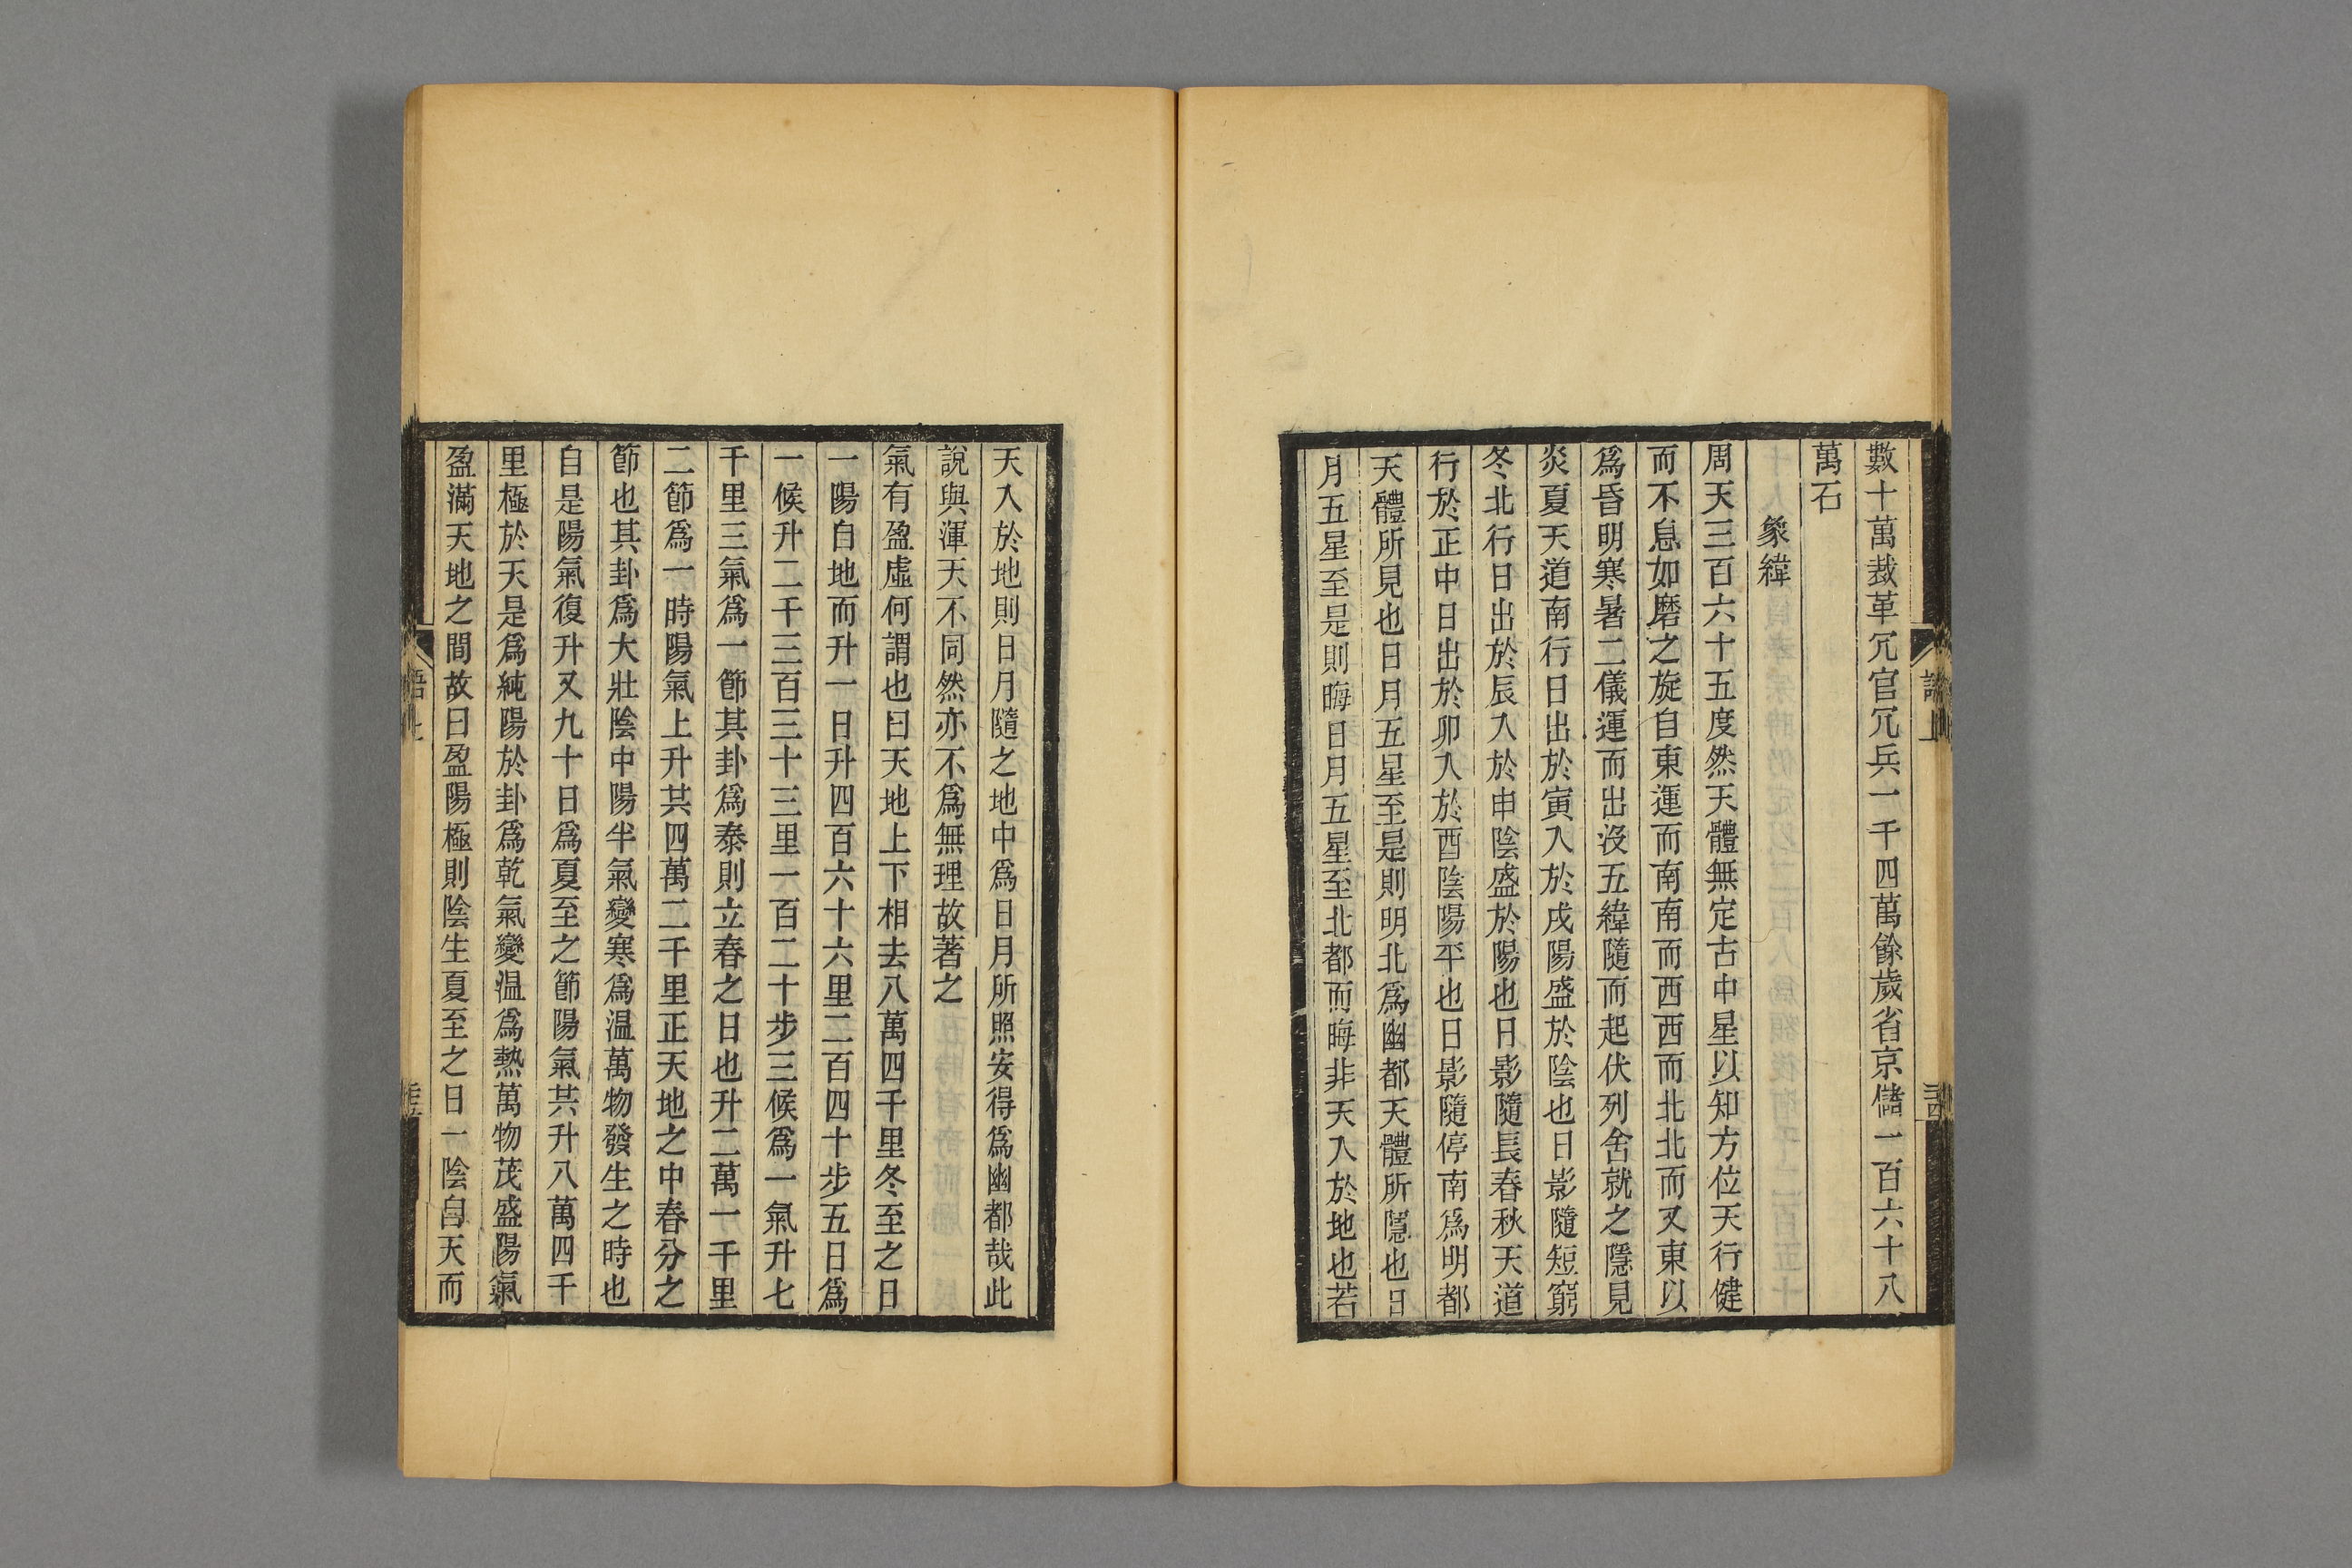 數十萬裁革冗官冗兵一千四萬餘歲省京儲一百六十八
萬石
象緯
周天三百六十五度然天體無定古中星以知方位天行健
而不息如磨之旋自東運而南南而西西而北北而又東以
爲昏明寒暑二儀運而出沒五緯隨而起伏列舍就之隱見
炎夏天道南行日出於寅入於戌陽盛於陰也日影隨短窮
冬北行日出於辰入於申陰盛於陽也日影隨長春秋天道
行於正中日出於卯入於酉陰陽平也日影隨停南爲明都
天體所見也日月五星至是則明北爲幽都天體所隱也日
月五星至是則晦日月五星至北都而晦非天入於地也若
天入於地則日月隨之地中爲日月所照安得爲幽都哉此
說與渾天不同然亦不爲無理故著之
氣有盈虛何謂也曰天地上下相去八萬四千里冬至之日
一陽自地而升一日升四百六十六里二百四十步五日爲
一候升二千三百三十三里一百二十步三候爲一氣升七
千里三氣爲一節其卦爲泰則立春之日也升二萬一千里
二節爲一時陽氣上升共四萬二千里正天地之中春分之
節也其卦爲大壯陰中陽半氣變寒爲温萬物發生之時也
自是陽氣復升又九十日爲夏至之節陽氣共升八萬四千
里極於天是爲純陽於卦爲乾氣變温爲熱萬物茂盛陽氣
盈滿天地之間故曰盈陽極則陰生夏至之日一陰自天而